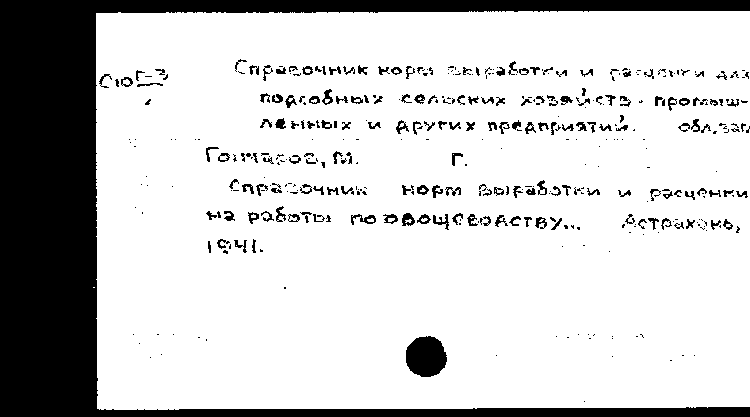 Справочник норм выработки и расценки для
СЮГ-3
подсобных сельских хозяйств промыш-
ленных и других предприятий. обл.заг
Гончаров, М. Г.
Справочник норм выработки и расценки
на работы по овощеводству... Астрахань,
1941.